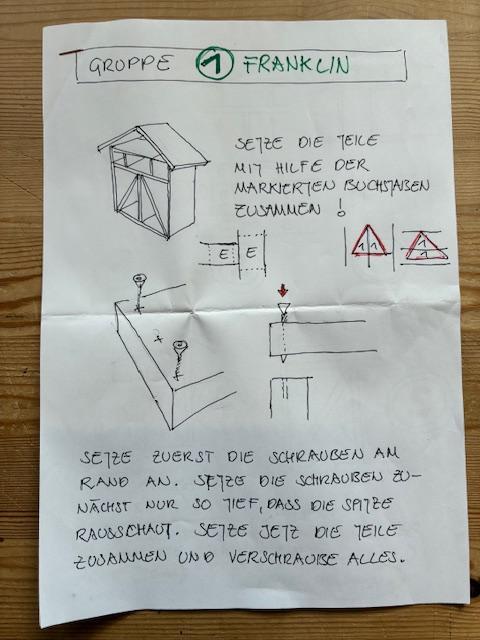 GRUPPE 1 FRANKLIN
SETZE DIE TEILE
MIT HILFE DER
MARKIERTEN BUCHSTABEN
ZUSAMMEN !
E E
1 1
1
1
SETZE ZUERST DIE SCHRAUBEN AM
RAND AN. SETZE DIE SCHRAUBEN ZU-
NÄCHST NUR SO TIEF, DASS DIE SPITZE
RAUSSCHAUT. SETZE JETZ DIE TEILE
ZUSAMMEN UND VERSCHRAUBE ALLES.